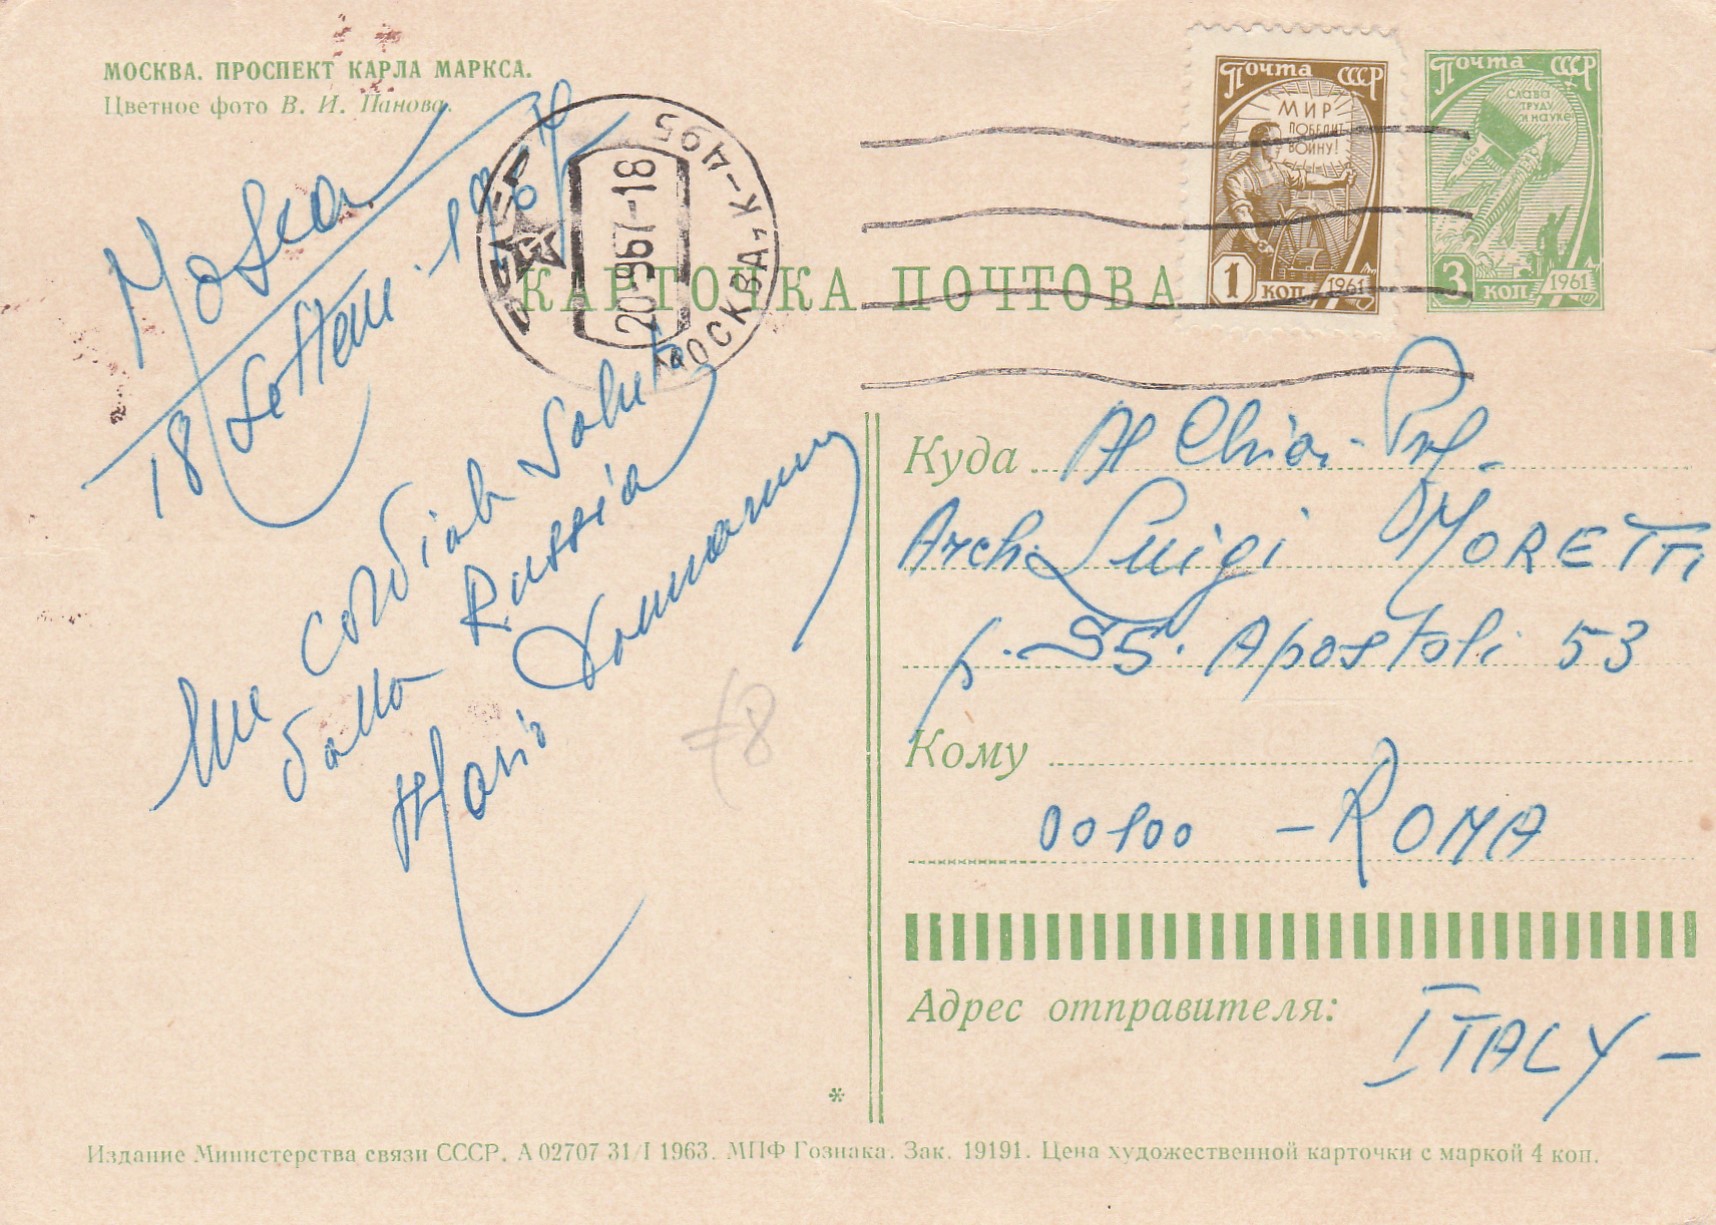 МОСКВА. ПРОСПЕКТ КАРЛА МАРКСА.
Цветное фото В. И. Панова.
Mosca
18 Settem. 1967
Un cordiale saluto
dalla Russia
Mario
СССР
МОСКВА К-Д95
20-9 67-18
ПОЧТА СССР
МИР
ПОБЕДИТ
ВОЙНУ!
1 КОП 1961
ПОЧТА СССР
СЛАВА
ТРУДУ
И НАУКЕ
СССР
3 КОП 1961
КАРТОЧКА ПОЧТОВА
Куда
Al Chiar. Prof.
Arch. Luigi MORETTI
p. SS. Apostoli 53
Кому
00100 - ROMA
Адрес отправителя:
ITALY -
78
*
Издание Министерства связи СССР. А 02707 31/I 1963. МПФ Гознака. Зак. 19191. Цена художественной карточки с маркой 4 коп.